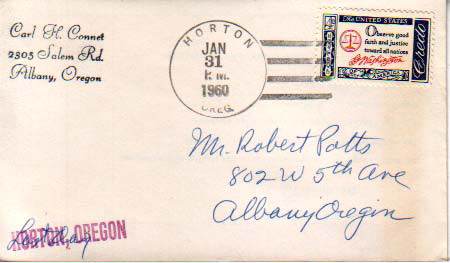 Carl H. Connet
2805 Salem Rd.
Albany, Oregon
HORTON
JAN
31
P.M.
1960
OREG.
UNITED STATES
Observe good
faith and justice
toward all nations
G Washington
Credo
Mr. Robert Potts
802 W 5th Ave
Albany Oregin
HORTON, OREGON
Last Day